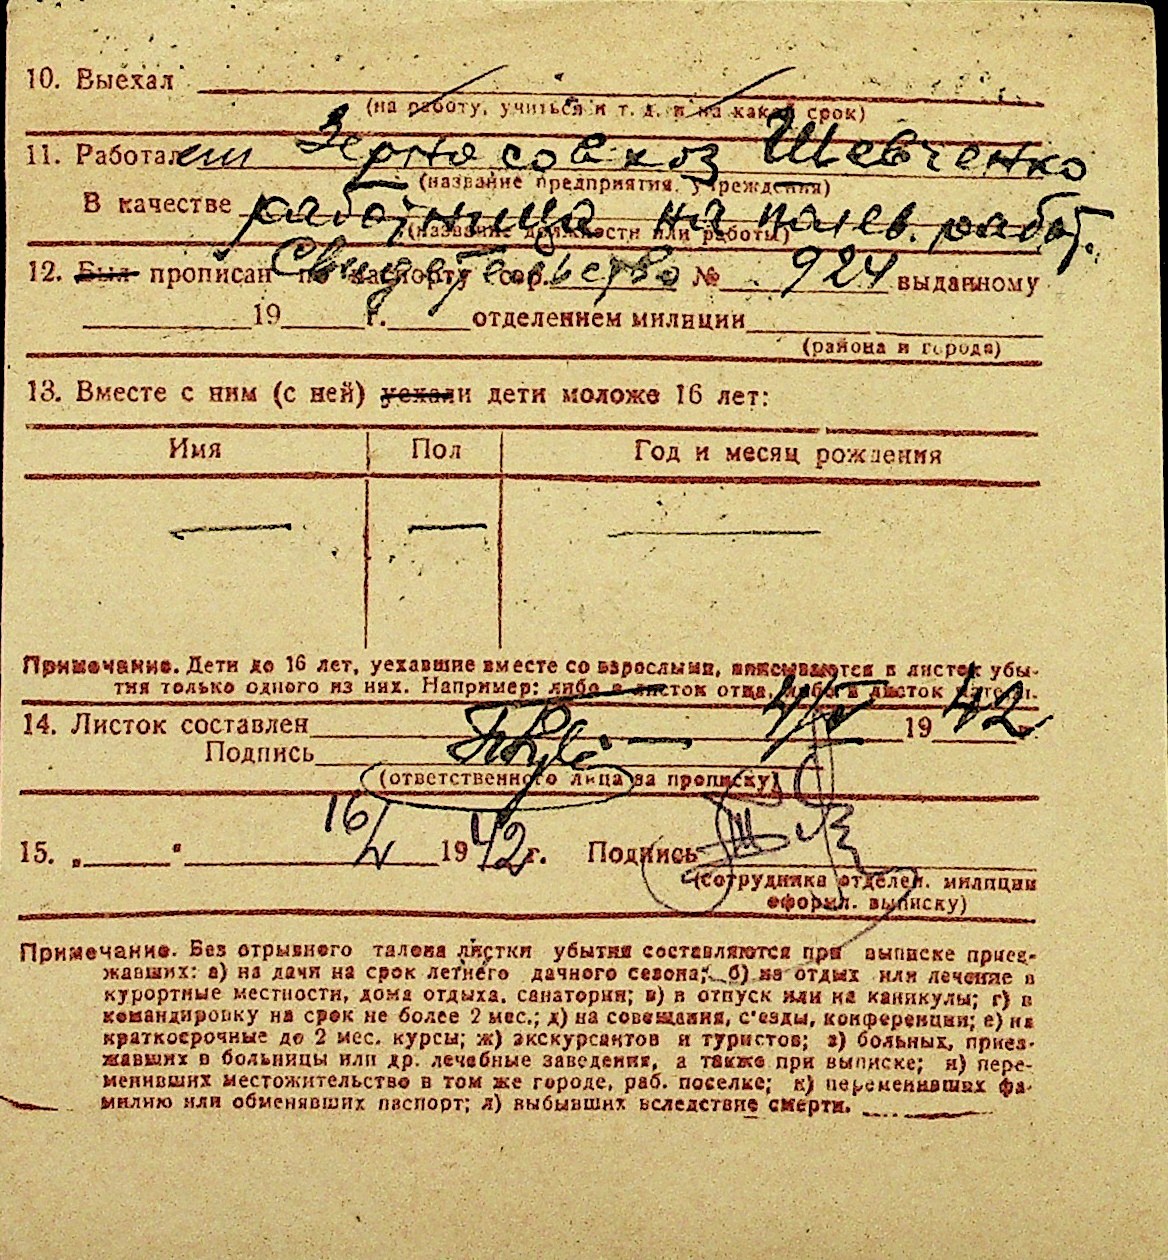 10. Выехал
(на работу, учиться и т. д. и на какой срок)
11. Работает Зерно совхоз Шевченко
(название предприятия, учреждения)
В качестве работница на палев. работ.
(название должности или работы)
12. Был прописан по паспорту сер. Свидетельство № 924 выданному
19 г. отделением милиции
(района и города)
13. Вместе с ним (с ней) уехали дети моложе 16 лет:
Имя Пол Год и месяц рождения
Примечание. Дети до 16 лет, уехавшие вместе со взрослыми, вписываются в листок убы-
тия только одного из них. Например: либо в листок отца, либо в листок матери.
14. Листок составлен 4/V 1942
Подпись
(ответственного лица за прописку)
15. „ " 16/V 1942 г. Подпись
(сотрудника отделен. милиции
оформ. выписку)
Примечание. Без отрывного талона листки убытия составляются при выписке приез-
жавших: а) на дачи на срок летнего дачного сезона; б) на отдых или лечение в
курортные местности, дома отдыха, санатории; в) в отпуск или на каникулы; г) в
командировку на срок не более 2 мес.; д) на совещания, с'езды, конференции; е) на
краткосрочные до 2 мес. курсы; ж) экскурсантов и туристов; з) больных, приез-
жавших в больницы или др. лечебные заведения, а также при выписке; и) пере-
менивших местожительство в том же городе, раб. поселке; к) переменивших фа-
милию или обменявших паспорт; л) выбывших вследствие смерти.